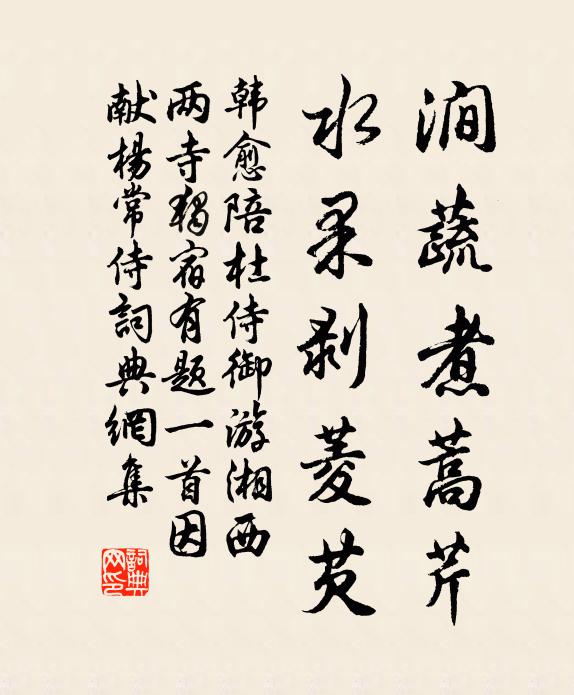 涧蔬煮蒿芹
水果剥菱芡
韩愈陪杜侍御游湘
西两寺独宿有题一首因
献楊常侍詞典網集
詞典
网印